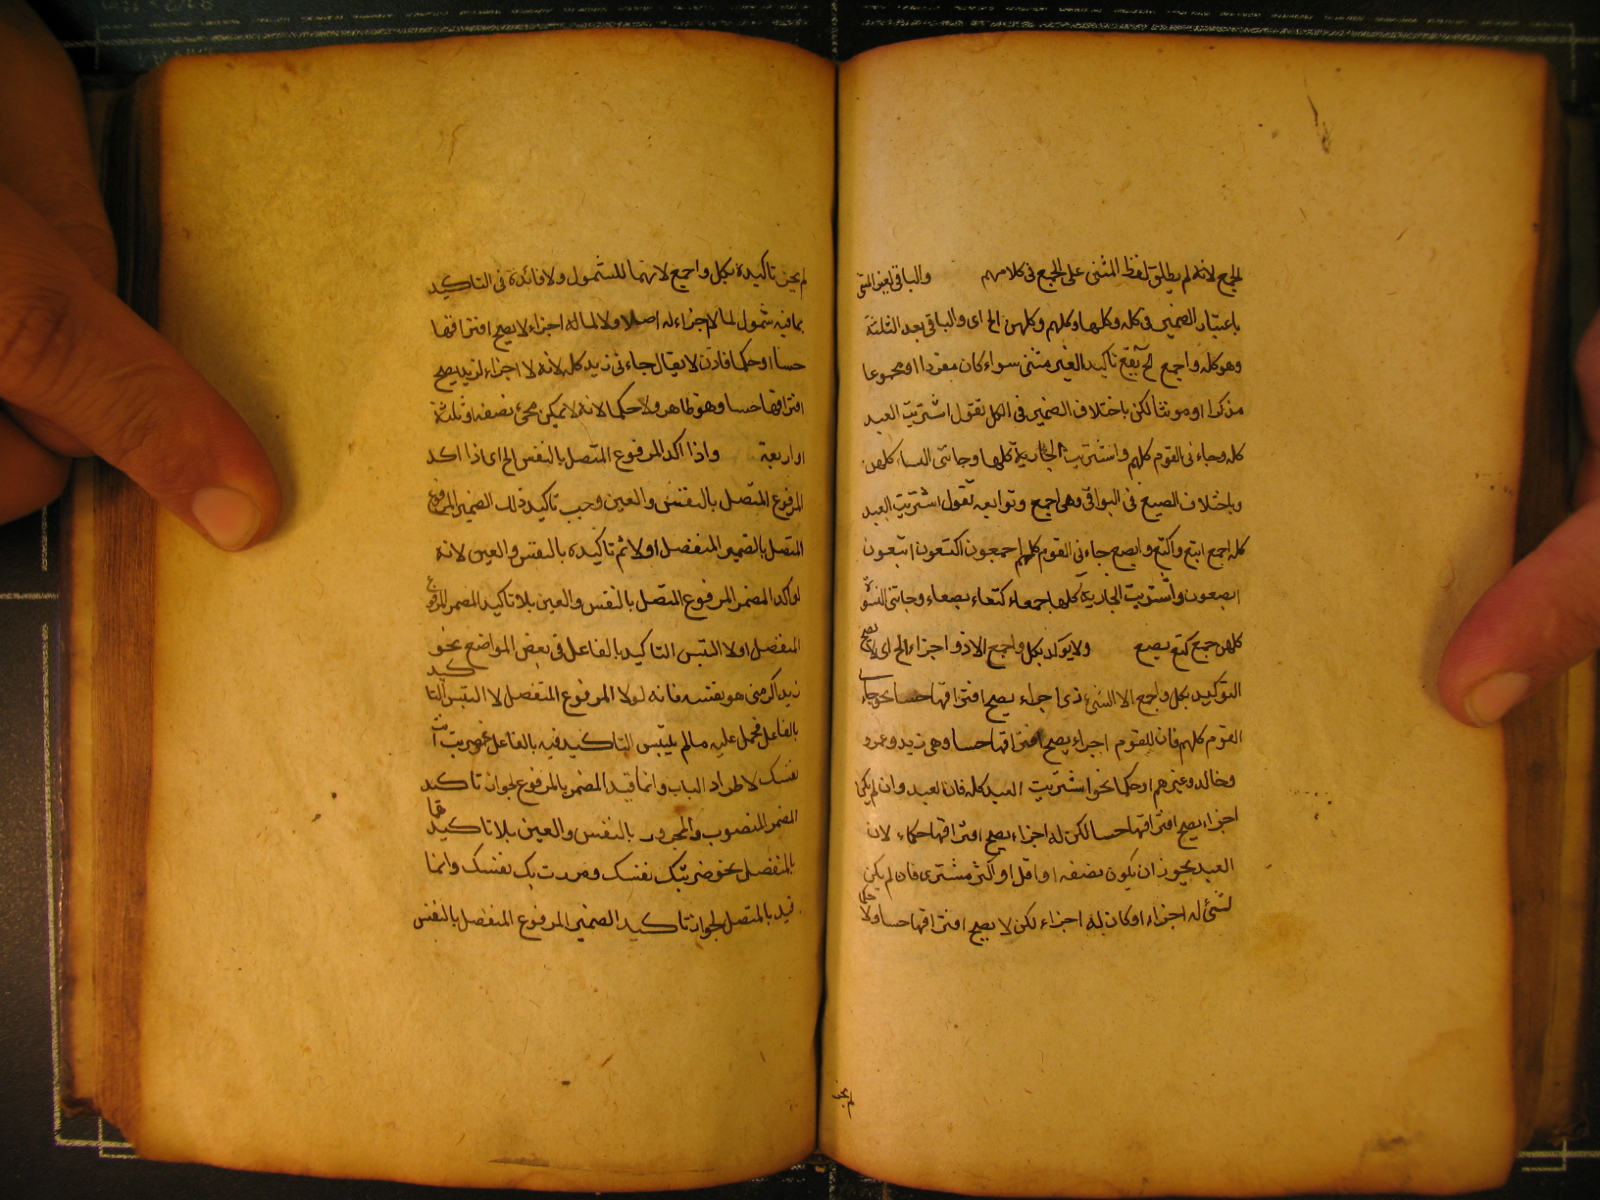 الجمع لانه لم يطلق لفظ المثنى على الجمع فى كلامهم والباقى لغير المثنى
باعتبار الضمير فى كله وكلها وكلهم وكلهن الخ اى والباقى بعد الثلثة
وهو كله واجمع الخ يقع تاكيد الغير مثنى سواء كان مفردا او مجموعا
مذكرا او مونثا لكن باختلاف الضمير فى الكل تقول اشتريت العبد
كله وجاءنى القوم كلهم واشتريت الجارية كلها وجاءتنى النساء كلهن
وباختلاف الصيغ فى البواقى وهى اجمع وتوابعه تقول اشتريت العبد
كله اجمع ابتع واكتع وابصع جاءنى القوم كلهم اجمعون اكتعون ابتعون
ابصعون واشتريت الجارية كلها جمعاء كتعاء بصعاء وجاءتنى النسوة
كلهن جمع كتع بصع ولا يوكد بكل واجمع الا ذو اجزاء الخ اى لا يصح
التوكيد بكل واجمع الا الشئ ذى اجزاء يصح افتراقها حسا نحو جاء
القوم كلهم فان للقوم اجزاء يصح افتراقها حسا وهى زيد وعمرو
وخالد وغيرهم او حكما نحو اشتريت العبد كله فان العبد وان لم يكن
اجزاء يصح افتراقها حسا لكن له اجزاء يصح افتراقها حكماء لان
العبد يجوز ان يكون نصفه او اقل او اكثر مشترى فان لم يكن
لشئ له اجزاء او كان له اجزاء لكن لا يصح افتراقها حسا ولا حكما
لم يجز
لم يجز تاكيده بكل واجمع لانهما للشمول ولا فائدة فى التاكيد
بما فيه شمول لما لا جزاء له اصلا ولا لما له اجزاء لا يصح افتراقها
حسا او حكما فاذن لا يقال جاءنى زيد كله لانه لا اجزاء لزيد يصح
افتراقها حسا وهو ظاهر ولا حكما لانه لا يمكن مجئ نصفه او ثلثة
او اربعة واذا اكد المرفوع المتصل بالنفس الخ اى اذا اكد
المرفوع المتصل بالنفس والعين وجب تاكيد ذلك الضمير المرفوع
المتصل بالضمير المنفصل اولا ثم تاكيده بالنفس والعين لانه
لو اكد المضمر المرفوع المتصل بالنفس والعين بلا تاكيد المضمر المرفوع
المنفصل اولا التبس التاكيد بالفاعل فى بعض المواضع نحو
زيد اكرمنى هو نفسه فانه لولا المرفوع المنفصل لا التبس التاكيد
بالفاعل فحمل عليه مالم يلتبس التاكيد فيه بالفاعل نحو ضربت انت
نفسك لاطراد الباب وانما قيد المضمر بالمرفوع لجواز تاكيد
المضمر المنصوب والمجرور بالنفس والعين بلا تاكيدها
بالمنفصل نحو ضربتك نفسك ومررت بك نفسك وانما
قيد بالمتصل لجواز تاكيد الضمير المرفوع المنفصل بالنفس